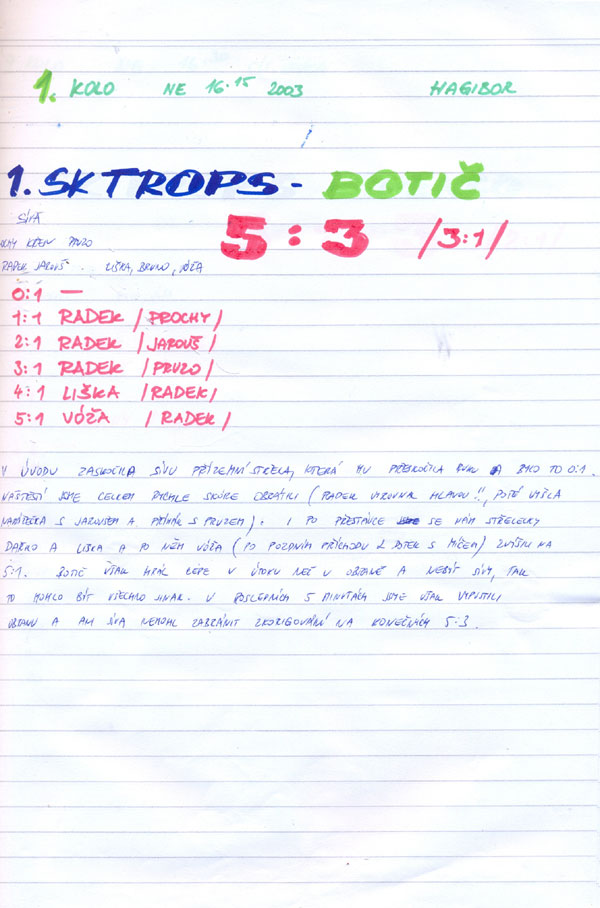 1. KOLO NE 16.15 2003 HAGIBOR
1. SK TROPS - BOTIČ
5:3 /3:1/
SÍVA
KŘEN PRUZO
RADEK JAROUŠ. LIŠKA, BRUNO, VÓŽA
0:1 —
1:1 RADEK /PROCHY/
2:1 RADEK /JAROUŠ/
3:1 RADEK /PRUZO/
4:1 LIŠKA /RADEK/
5:1 VÓŽA /RADEK/
V ÚVODU ZASKOČILA SÍVU PŘÍZEMNÍ STŘELA, KTERÁ MU PŘESKOČILA RUKU A BYLO TO 0:1.
NAŠTĚSTÍ JSME CELKEM RYCHLE SKÓRE OBRÁTILI (RADEK VYROVNAL HLAVOU!!, POTÉ VYŠLA
S JAROUŠEM A S PRUZEM). I PO PŘESTÁVCE SE NÁM STŘELECKY
DAŘILO A LIŠKA A PO NĚM VÓŽA (PO POZDNÍM PŘÍCHODU 2. DOTEK S MÍČEM) ZVÝŠILI NA
5:1. BOTIČ VŠAK HRÁL LÉPE V ÚTOKU NEŽ V OBRANĚ A NEBÝT SÍVY, TAK
TO MOHLO BÝT VŠECHNO JINAK. V POSLEDNÍCH 5 MINUTÁCH JSME VŠAK VYPUSTILI
OBRANU A ANI SÍVA NEMOHL ZABRÁNIT ZKORIGOVÁNÍ NA KONEČNÝCH 5:3.